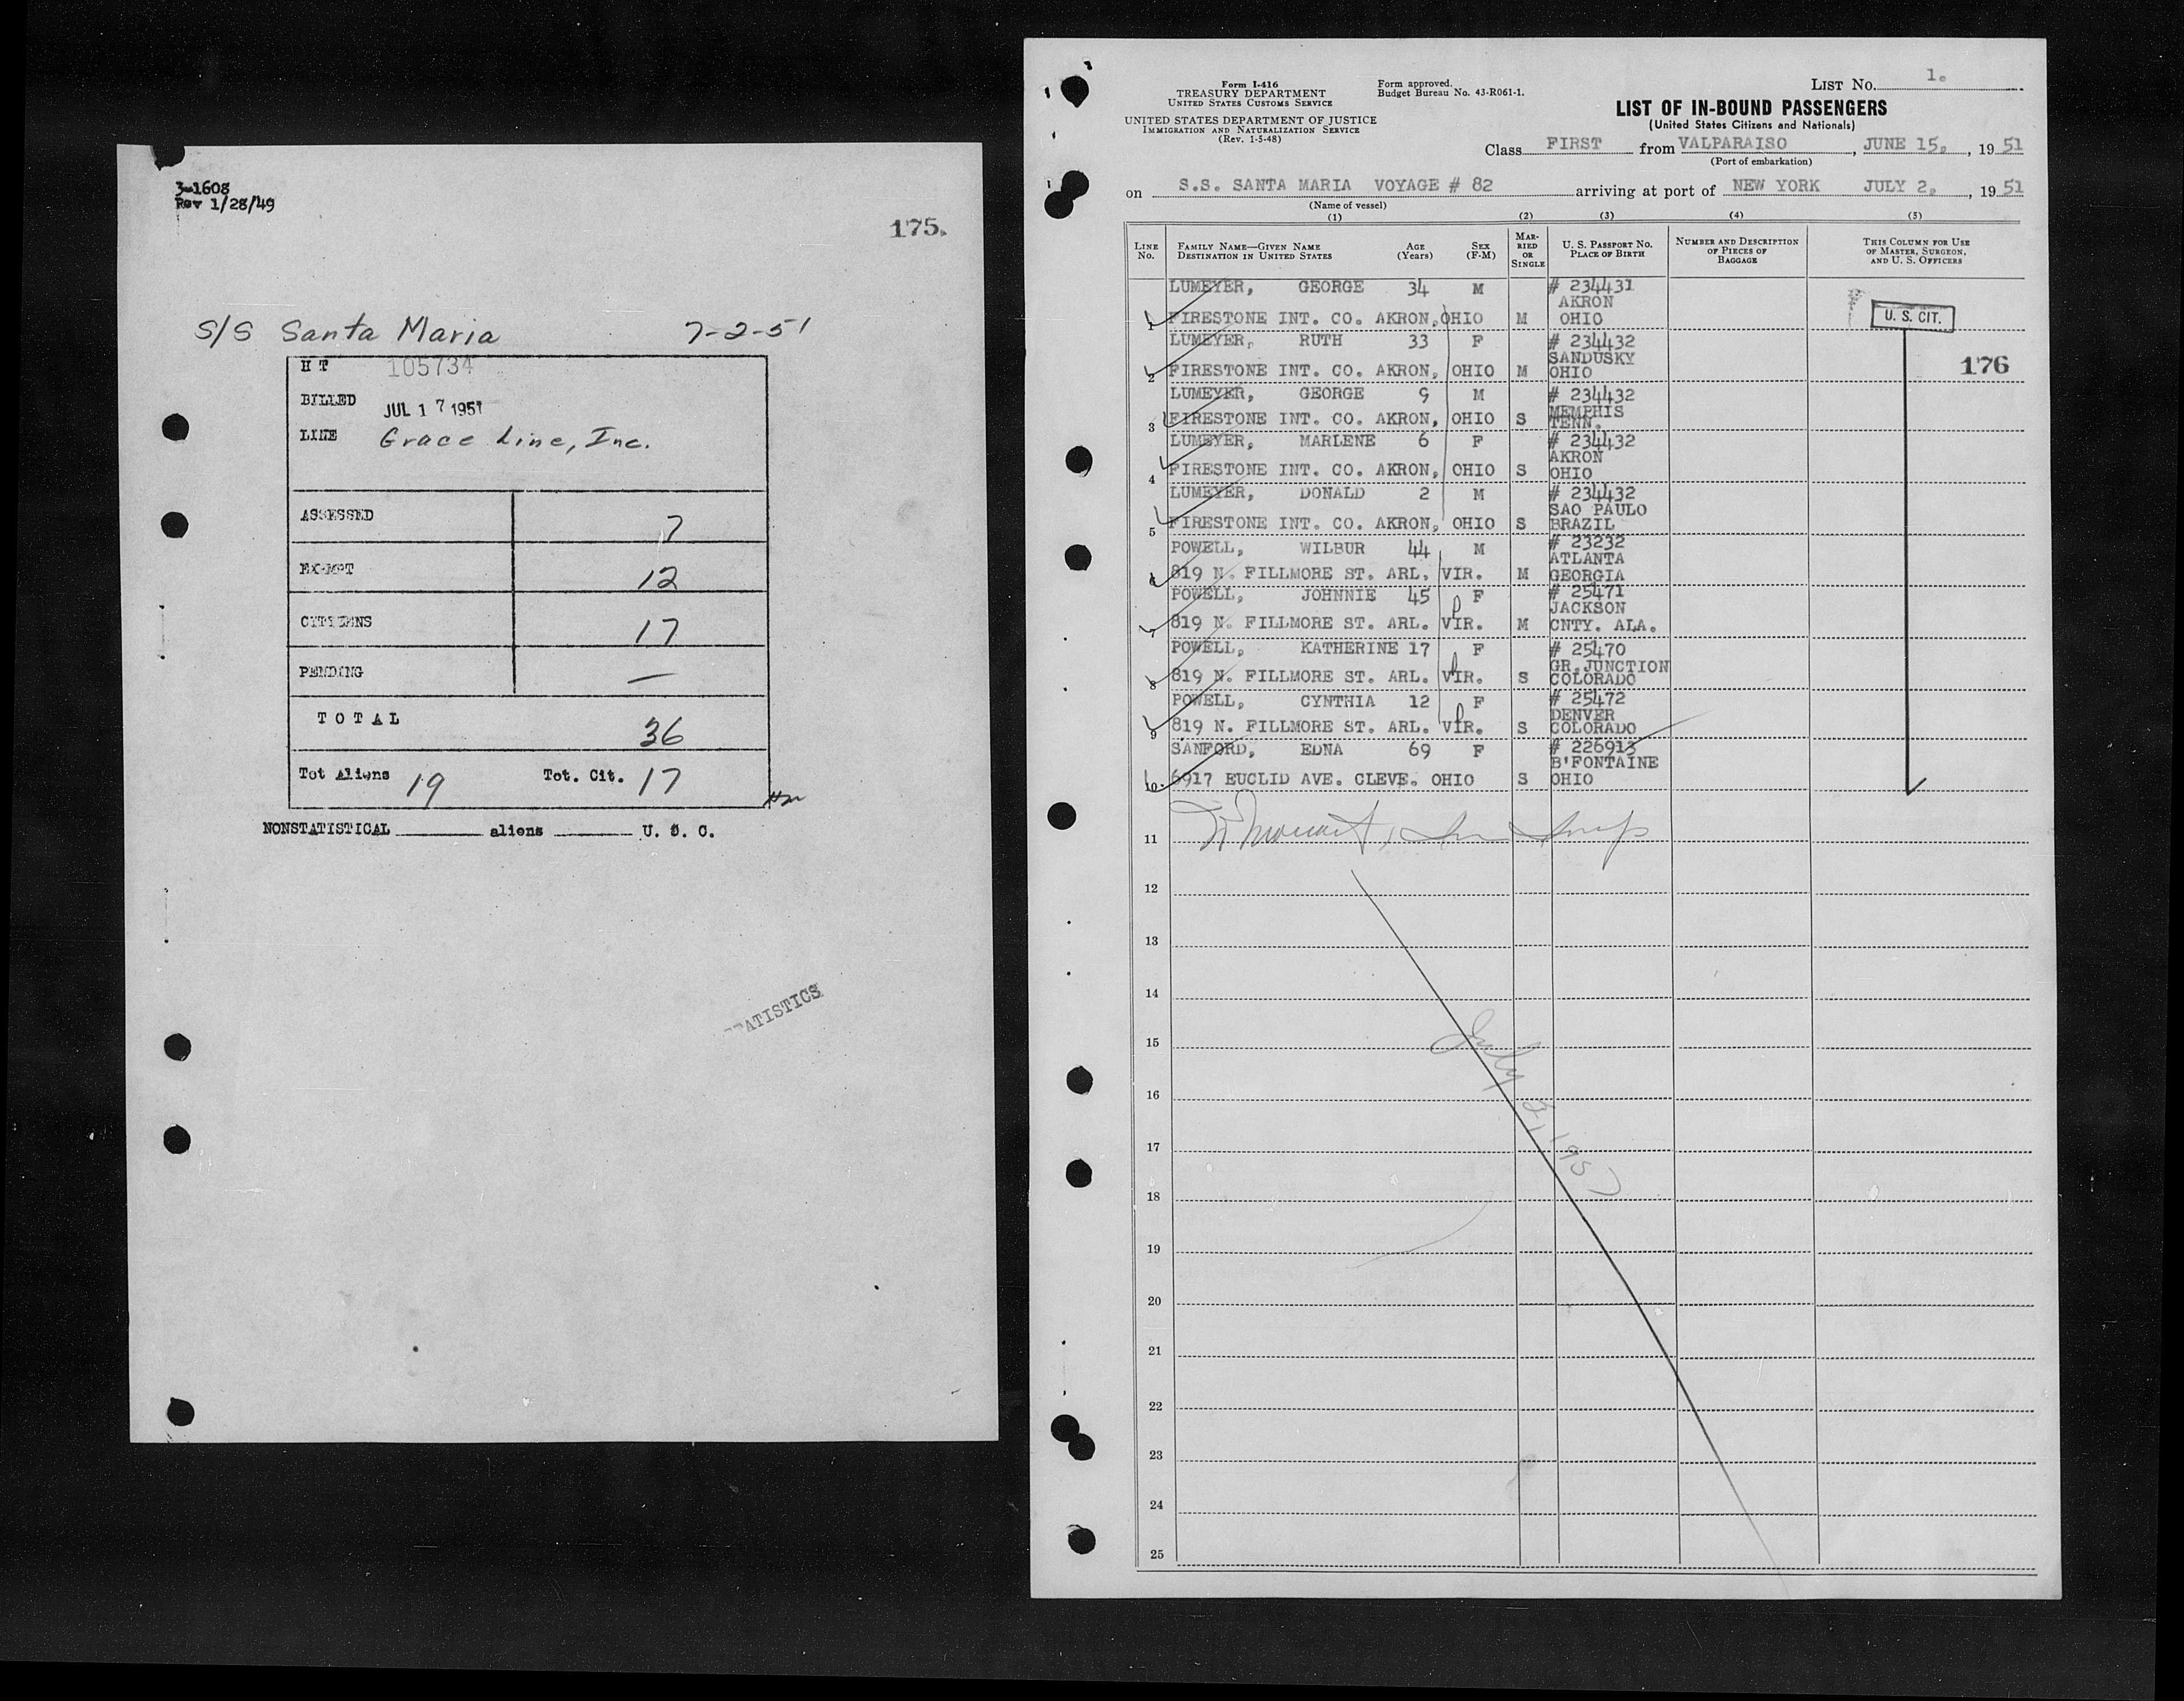 3-1608
Rev 1/28/49
175.
S/S Santa Maria 7-2-51
HT 105734
BILLED JUL 17 1951
LINE Grace Line, Inc.
ASSESSED 7
EXEMPT 12
CITIZENS 17
PENDING —
TOTAL 36
Tot Aliens 19 Tot. Cit. 17
NONSTATISTICAL aliens U. S. C.
ATISTICS
Form I-416
TREASURY DEPARTMENT
UNITED STATES CUSTOMS SERVICE
UNITED STATES DEPARTMENT OF JUSTICE
IMMIGRATION AND NATURALIZATION SERVICE
(Rev. 1-5-48)
Form approved.
Budget Bureau No. 43-R061-1.
LIST No. 1.
LIST OF IN-BOUND PASSENGERS
(United States Citizens and Nationals)
Class FIRST from VALPARAISO, JUNE 15, 1951
(Port of embarkation)
on S.S. SANTA MARIA VOYAGE # 82 arriving at port of NEW YORK JULY 2, 1951
(Name of vessel)
(1) (2) (3) (4) (5)
LINE No. FAMILY NAME—GIVEN NAME DESTINATION IN UNITED STATES AGE (Years) SEX (F-M) MARRIED OR SINGLE U. S. PASSPORT NO. PLACE OF BIRTH NUMBER AND DESCRIPTION OF PIECES OF BAGGAGE THIS COLUMN FOR USE OF MASTER, SURGEON, AND U. S. OFFICERS
LUMEYER, GEORGE 34 M # 234431
AKRON
1 FIRESTONE INT. CO. AKRON, OHIO M OHIO
U. S. CIT.
LUMEYER, RUTH 33 F # 234432
SANDUSKY
2 FIRESTONE INT. CO. AKRON, OHIO M OHIO
176
LUMEYER, GEORGE 9 M # 234432
MEMPHIS
3 FIRESTONE INT. CO. AKRON, OHIO S TENN.
LUMEYER, MARLENE 6 F # 234432
AKRON
4 FIRESTONE INT. CO. AKRON, OHIO S OHIO
LUMEYER, DONALD 2 M # 234432
SAO PAULO
5 FIRESTONE INT. CO. AKRON, OHIO S BRAZIL
POWELL, WILBUR 44 M # 23232
ATLANTA
6 819 N. FILLMORE ST. ARL. VIR. M GEORGIA
POWELL, JOHNNIE 45 F # 25471
JACKSON
7 819 N. FILLMORE ST. ARL. VIR. M CNTY. ALA.
POWELL, KATHERINE 17 F # 25470
GR.JUNCTION
8 819 N. FILLMORE ST. ARL. VIR. S COLORADO
POWELL, CYNTHIA 12 F # 25472
DENVER
9 819 N. FILLMORE ST. ARL. VIR. S COLORADO
SANFORD, EDNA 69 F # 226913
B'FONTAINE
10 6917 EUCLID AVE. CLEVE. OHIO S OHIO
11
12
13
14
15
16
17
July 3, 1951
18
19
20
21
22
23
24
25